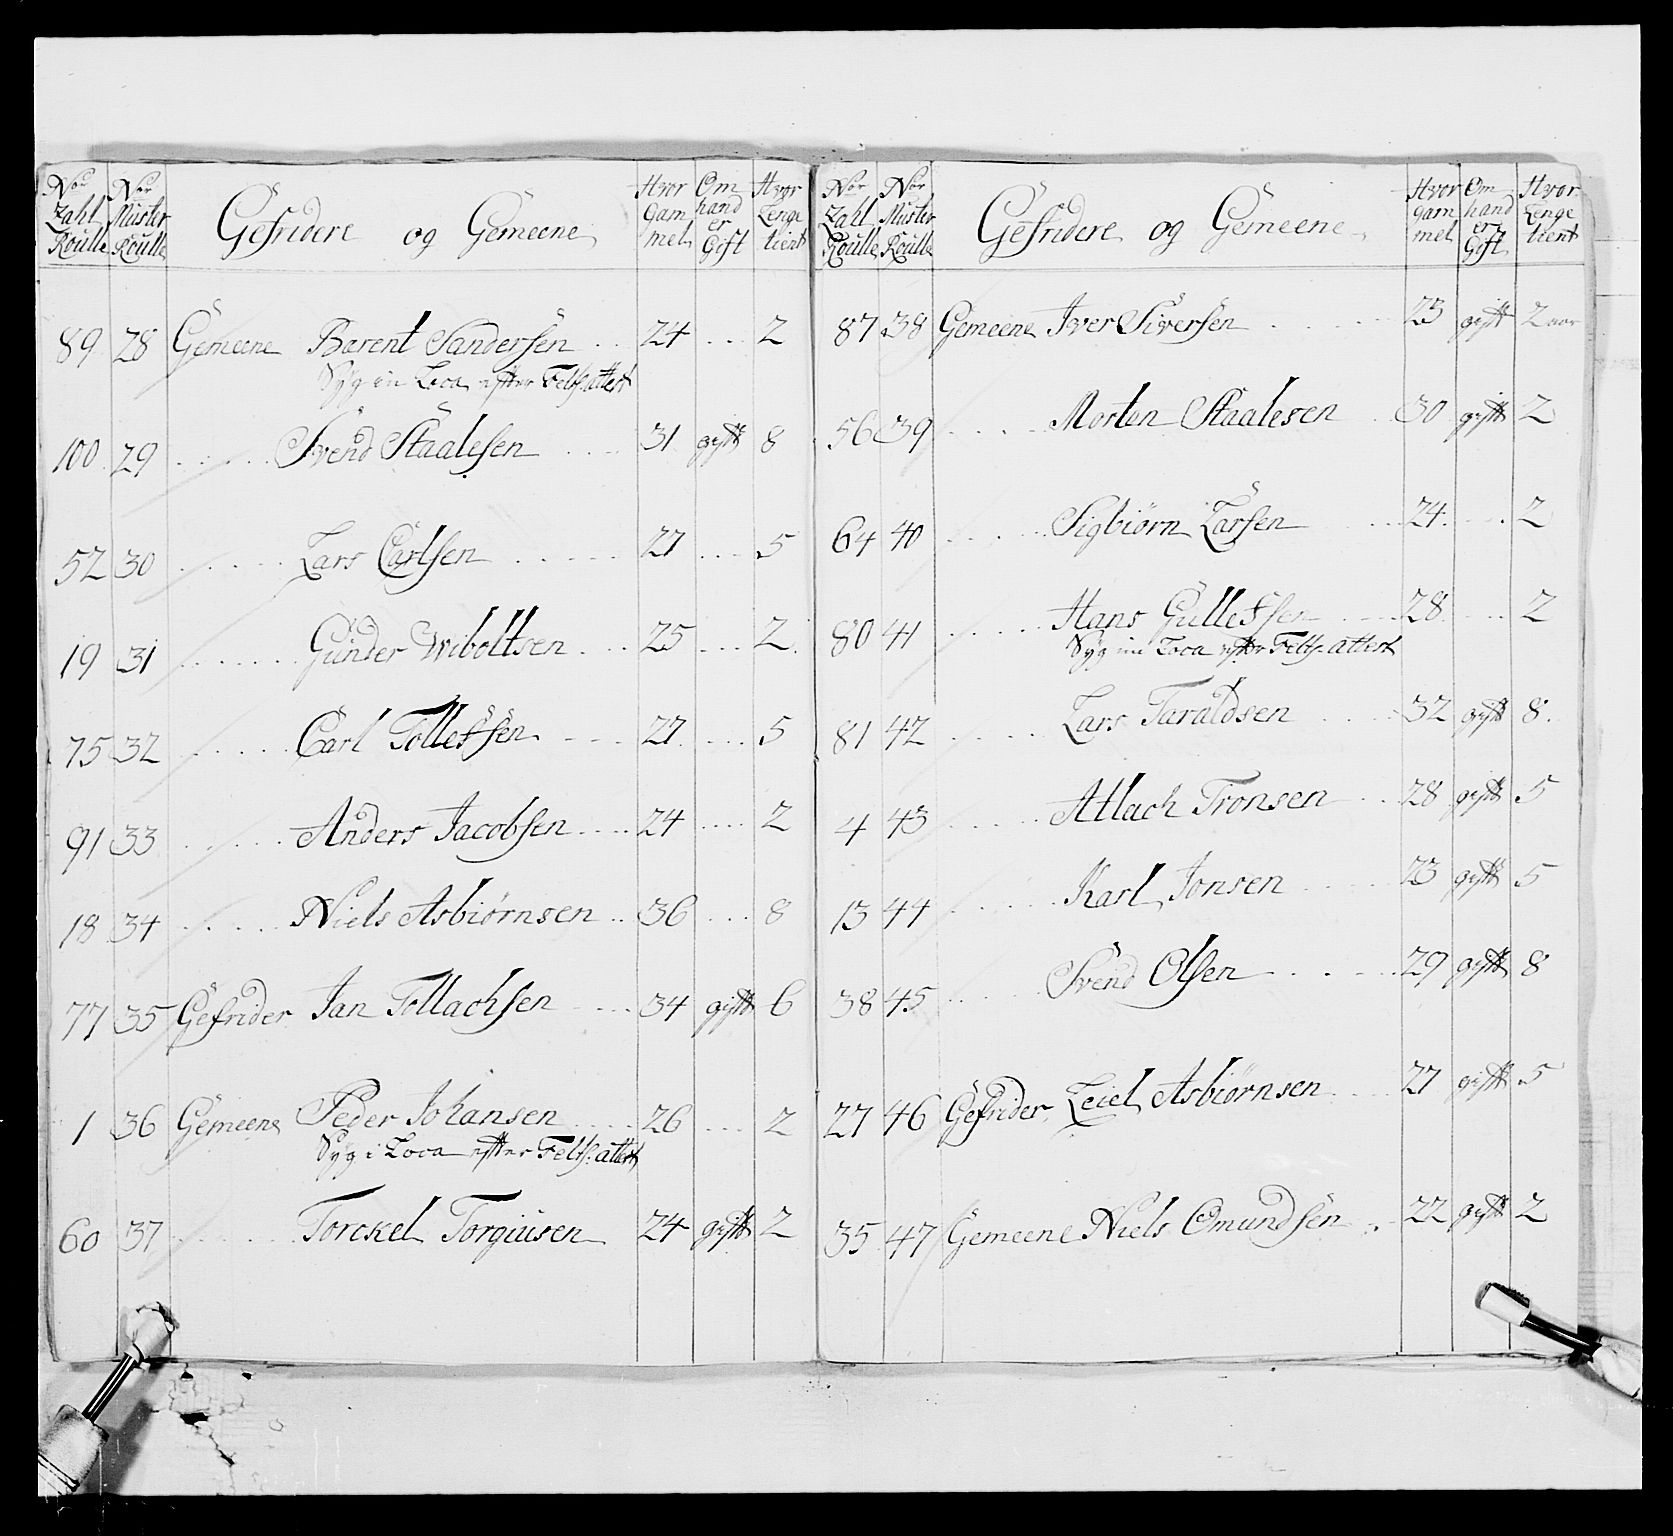 Nor Zahl Roulle | Nor Müster Roulle | Gefridere og Gemeene | Hvor Gam mel | Om hand er Gift | Hvor Lenge tient
89 28 Gemeene Barent Sandersen 24 2
Syg in Loca efter Feltsk: attest
100 29 Svend Staalesen 31 gift 8
52 30 Lars Carlsen 27 5
19 31 Gunder Wiboltsen 25 2
75 32 Carl Tollefsen 27 5
91 33 Anders Jacobsen 24 2
18 34 Niels Asbiørnsen 36 8
77 35 Gefrider Jan Tollachsen 34 gift 6
1 36 Gemeene Peder Johansen 26 2
Syg i Loca efter Feltsk: attest
60 37 Torckel Torgiusen 24 gift 2
Nor Zahl Roulle | Nor Müster Roulle | Gefridere og Gemeene | Hvor gam mel | Om hand er Gift | Hvor Lenge tient
87 38 Gemeene Iver Siversen 23 gift 2 aar
56 39 Morten Staalesen 30 gift 2
64 40 Sigbiørn Larsen 24 2
80 41 Hans Gullefsen 28 2
Syg in Loca efter Feltsk: attest
81 42 Lars Taraldsen 32 gift 8
4 43 Atlach Tronsen 28 gift 5
13 44 Karl Jonsen 23 gift 5
38 45 Svend Olsen 29 gift 8
27 46 Gefrider Leiel Asbiørnsen 27 gift 5
35 47 Gemeene Niels Omundsen 22 gift 2